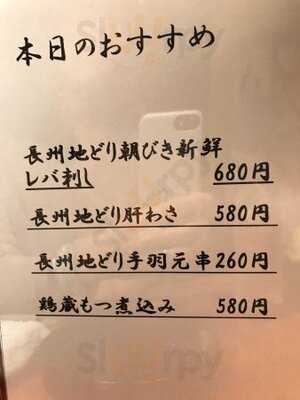 本日のおすすめ
長州地どり朝びき新鮮
レバ刺し 680円
長州地どり肝わさ 580円
長州地どり手羽元串260円
鶏蔵もつ煮込み 580円